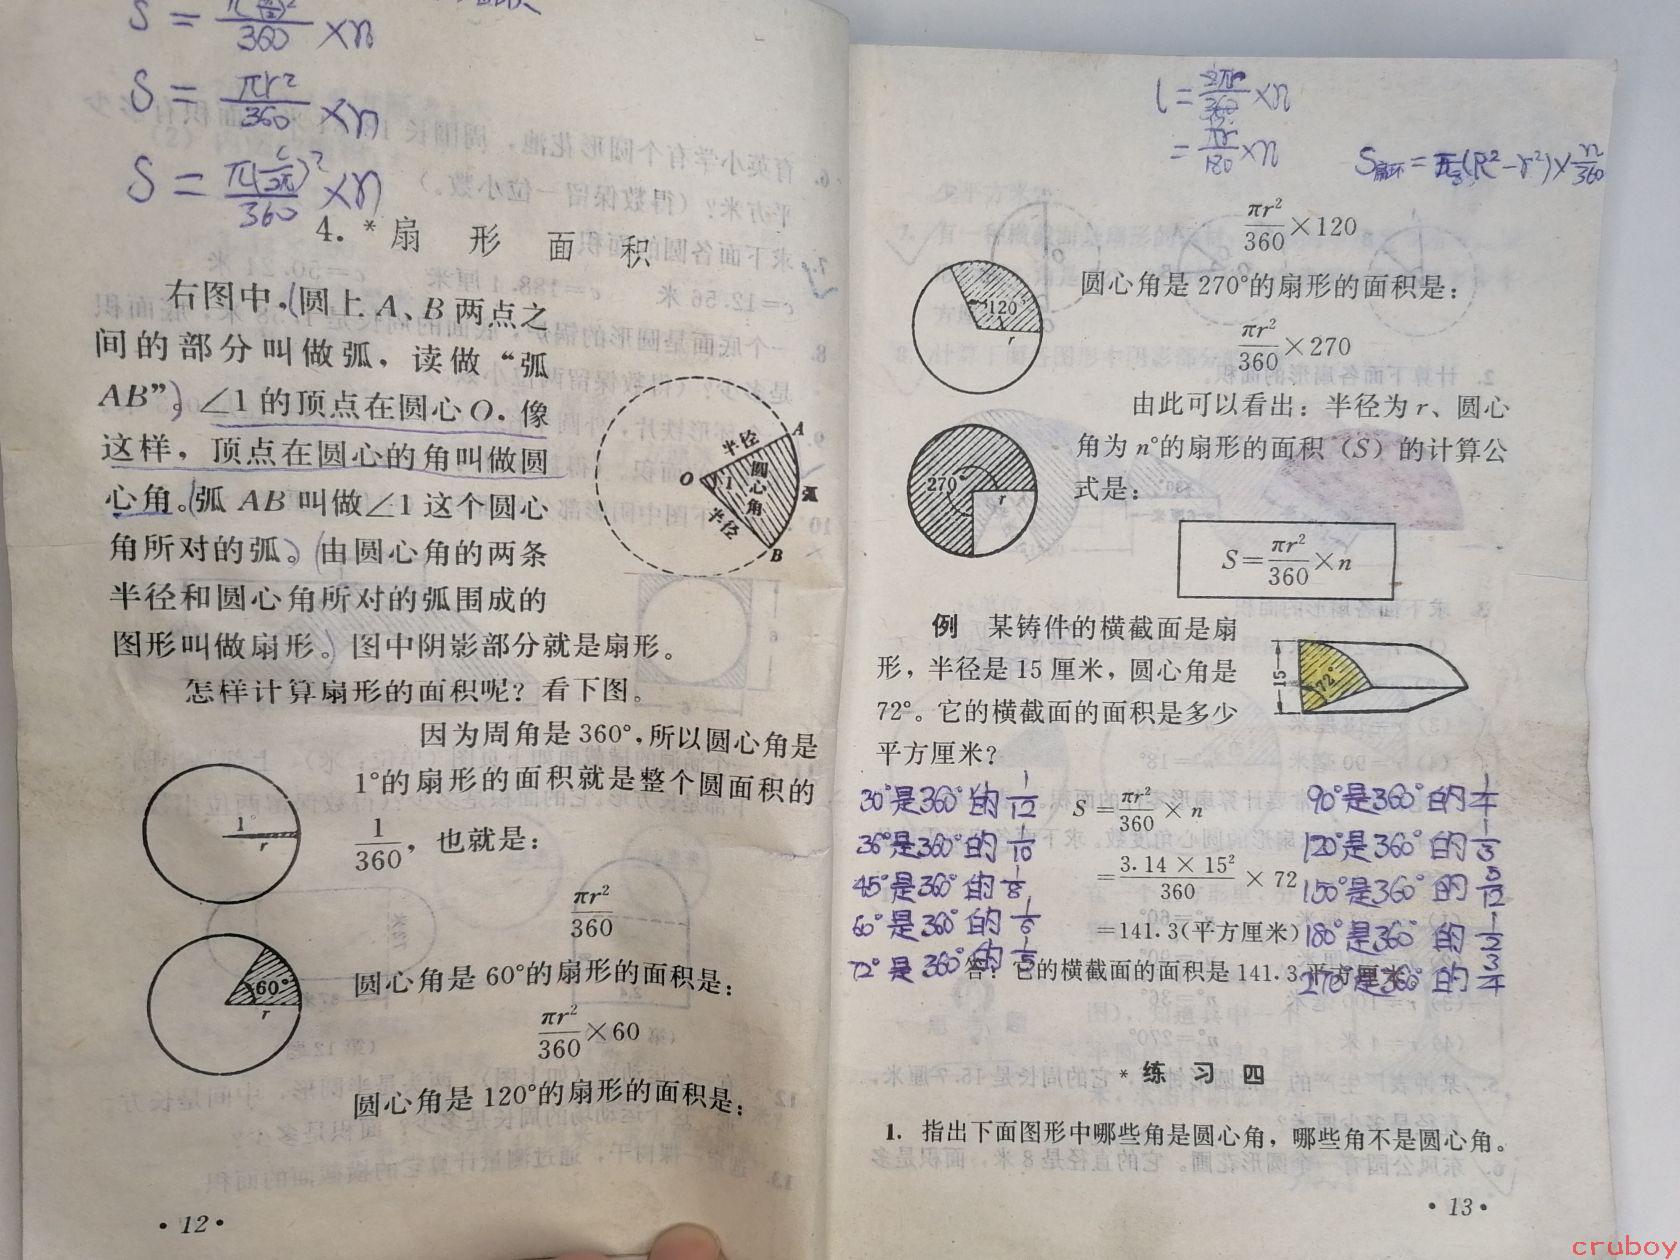 S = π( )²/360 ×n
S = πr²/360 ×n
S = π(c/2π)²/360 ×n
4. * 扇 形 面 积
右图中,(圆上 A、B 两点之
间的部分叫做弧，读做“弧
AB”)。∠1 的顶点在圆心 O. 像
这样，顶点在圆心的角叫做圆
心角。(弧 AB 叫做∠1 这个圆心
角所对的弧。)(由圆心角的两条
半径和圆心角所对的弧围成的
图形叫做扇形。)图中阴影部分就是扇形。
半径
A
O 1 圆心角
半径
B
怎样计算扇形的面积呢？看下图。
因为周角是 360°,所以圆心角是
1°的扇形的面积就是整个圆面积的
1/360，也就是：
1°
r
πr²/360
圆心角是 60°的扇形的面积是：
60°
r
πr²/360×60
圆心角是 120°的扇形的面积是：
·12·
l = 2πr/360 ×n
= πr/180 ×n
S扇环 = (R²-r²)×n/360
πr²/360×120
120°
r
圆心角是 270°的扇形的面积是：
πr²/360×270
由此可以看出：半径为 r、圆心
角为 n°的扇形的面积（S）的计算公
式是：
270°
r
S=πr²/360×n
例 某铸件的横截面是扇
形，半径是 15 厘米，圆心角是
72°。它的横截面的面积是多少
平方厘米？
15
72°
30°是360°的1/12
36°是360°的1/10
45°是360°的1/8
60°是360°的1/6
72°是360°的1/5
S=πr²/360×n
=3.14×15²/360×72
=141.3(平方厘米)
答：它的横截面的面积是 141.3 平方厘米
90°是360°的1/4
120°是360°的1/3
150°是360°的5/12
180°是360°的1/2
270°是360°的3/4
* 练 习 四
1. 指出下面图形中哪些角是圆心角，哪些角不是圆心角。
·13·
cruboy